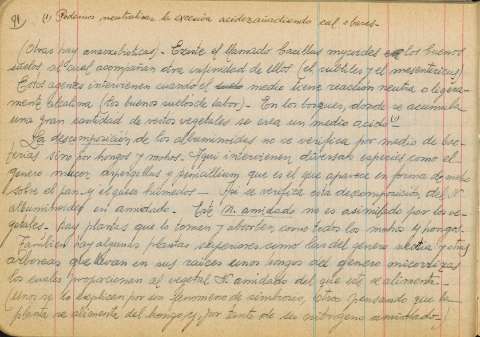 91 (1) Podemos neutralizar la reacción ácida añadiendo cal o bases.
(Otras hay anaerobióticas). Existe el llamado Bacillus mycoides en los buenos
suelos al cual acompañan otra infinidad de ellos (el subtiles y el mesentéricus).
Estos agentes intervienen cuando el suelo medio tiene reacción neutra o ligera-
mente alcalina (los buenos suelos de labor). En los bosques, donde se acumula
una gran cantidad de restos vegetales se crea un medio ácido (1)
La descomposición de los albuminoides no se verifica por medio de bac-
terias sino por hongos y mohos. Aquí intervienen diversas especies como el
género mucor, aspergillus y penicillium que es el que aparece en forma de
sobre el pan y el queso húmedos. Así se verifica esta descomposición del N.
albuminoideo en amidado. Este N. amidado no es asimilado por los ve-
getales. Hay plantas que lo toman y absorben, como todos los mohos y hongos.
También hay algunas plantas superiores como las del género y otras
arbóreas que llevan en sus raíces unos hongos del género micorrizas
los cuales proporcionan al vegetal N. amidado del que éste se alimenta.
(unos se lo explican por un fenómeno de simbiosis, otros pensando que la
planta se alimenta del hongo y, por tanto de su nitrógeno amidado.)